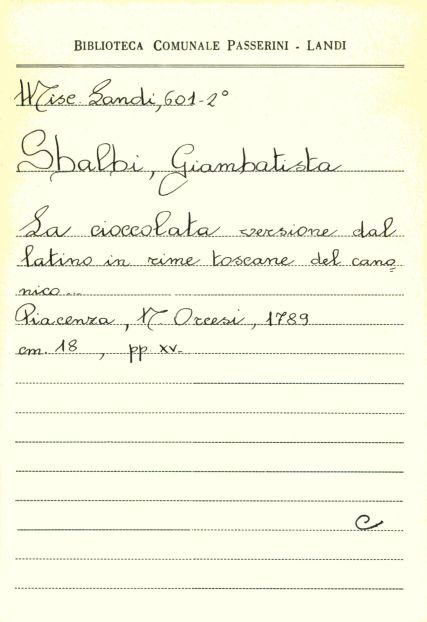 BIBLIOTECA COMUNALE PASSERINI - LANDI
Misc. Landi, 601-2°
Sbalbi, Giambatista
La cioccolata versione dal
latino in rime toscane del cano=
nico...
Piacenza, N. Orcesi, 1789
cm. 18, pp xv.
C